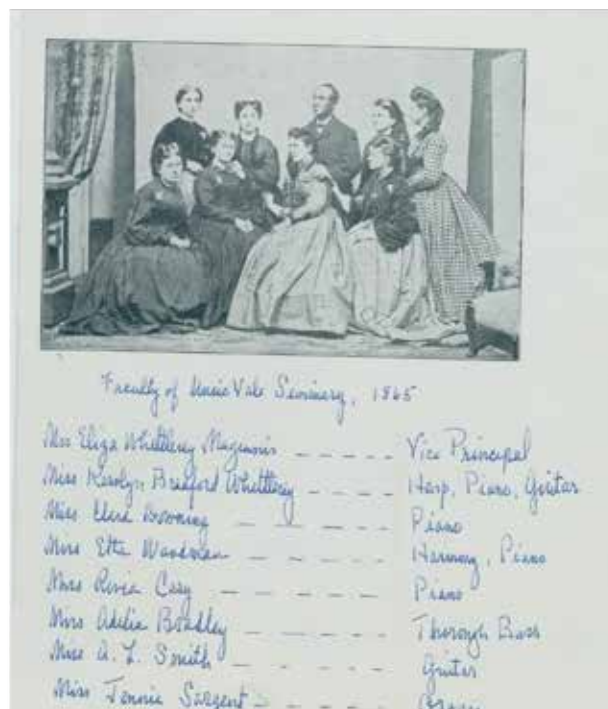 Faculty of Music Vale Seminary, 1865
Mrs Eliza Whittlesey Maginnis ----- Vice Principal
Miss Karolyn Bradford Whittlesey ---- Harp, Piano, Guitar
Miss Downing ----- Piano
Miss Etta Woodman ----- Harmony, Piano
Miss Cary ------ Piano
Miss Adelia Bradley ----- Thorough Bass
Miss A. L. Smith ----- Guitar
Miss Jennie Sargent ----- Organ